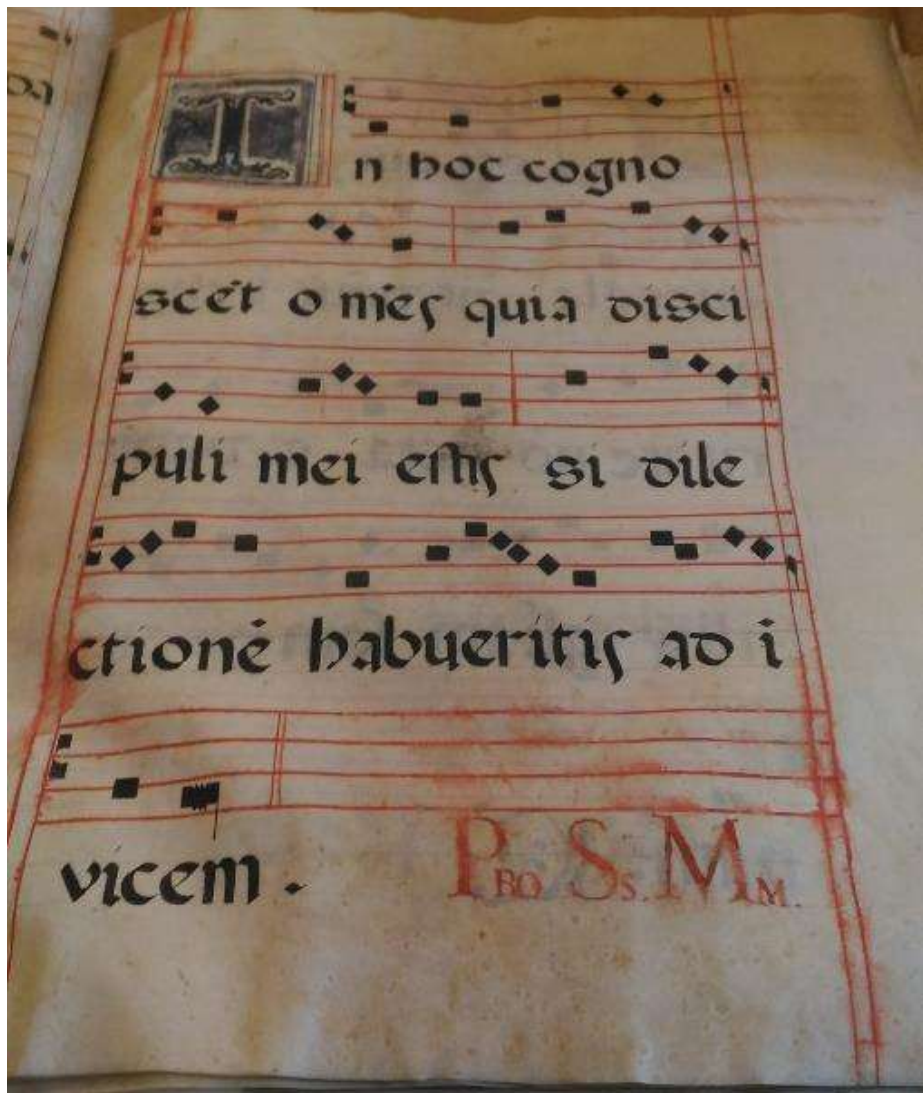 In hoc cogno
scēt o mēs quia disci
puli mei estis si dile
ctionē habueritis ad ī
vicem .
PBO SS. MM.